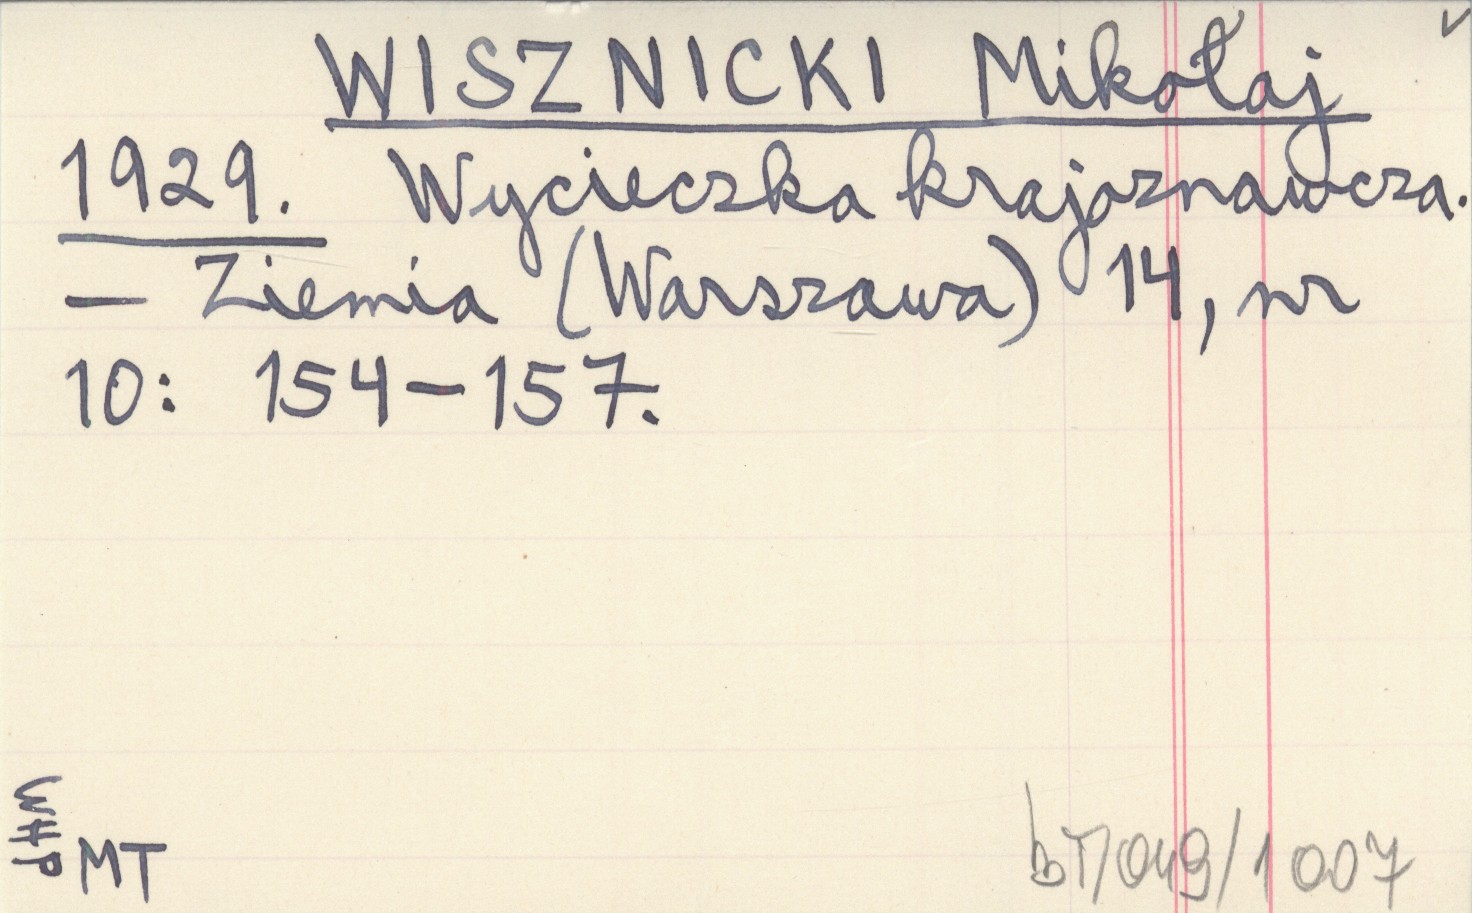 WISZNICKI Mikołaj
1929. Wycieczka krajoznawcza.
— Ziemia (Warszawa) 14, nr
10: 154–157.
WHP
MT